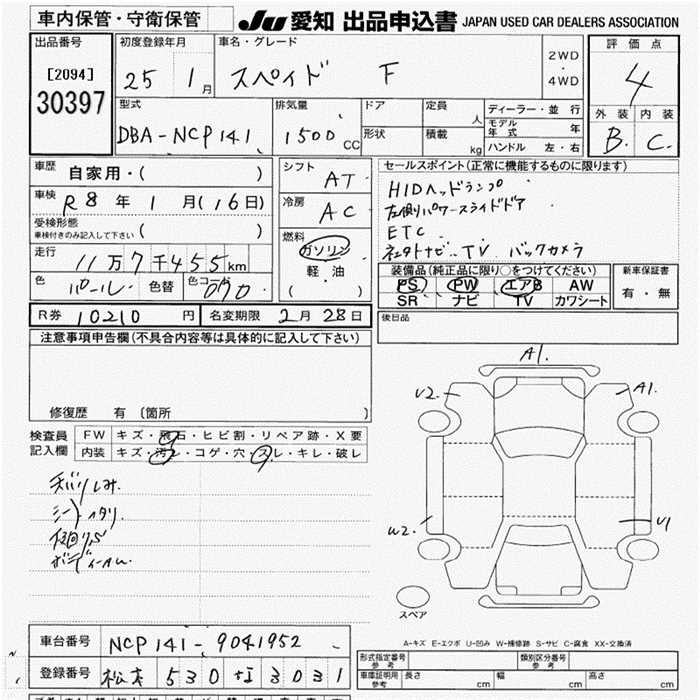 車内保管・守衛保管
JU 愛知 出品申込書 JAPAN USED CAR DEALERS ASSOCIATION
出品番号
[2094]
30397
初度登録年月
25 1月
車名・グレード
スペイド F
2WD
・
4WD
評価点
4
外装 内装
B. C.
型式
DBA-NCP141
排気量
1500 CC
ドア
形状
定員 人
積載 kg
ディーラー・並行
モデル年式 年
ハンドル 左・右
車歴 自家用・( )
車検 R8年 1月(16日)
受検形態
車検付きのみ記入して下さい ( )
走行 11万7千455km
色 パール 色替 色コード 070
シフト AT
冷房 AC
燃料
ガソリン
軽・油
( )
セールスポイント(正常に機能するものに限ります)
HIDヘッドランプ
左側パワースライドドア
ETC
TV バックカメラ
装備品(純正品に限り○をつけてください)
PS PW エアB AW
SR ナビ TV カワシート
新車保証書
有・無
R券 10210円 名変期限 2月28日
後日品
注意事項申告欄(不具合内容等は具体的に記入して下さい)
修復歴 有 〔箇所 〕
検査員記入欄
FW キズ・飛石・ヒビ割・リペア跡・X要
内装 キズ・汚レ・コゲ・穴・スレ・キレ・破レ
シートヘタリ
A1.
U2.
A1.
W2.
U1
スペア
A-キズ E-エクボ U-凹み W-補修跡 S-サビ C-腐食 XX-交換済
車台番号 NCP141-9041952
登録番号 松本 530 3031
形式指定番号 参考
類別区分番号 参考
車庫証明用 参考 長さ cm 幅 cm 高さ cm